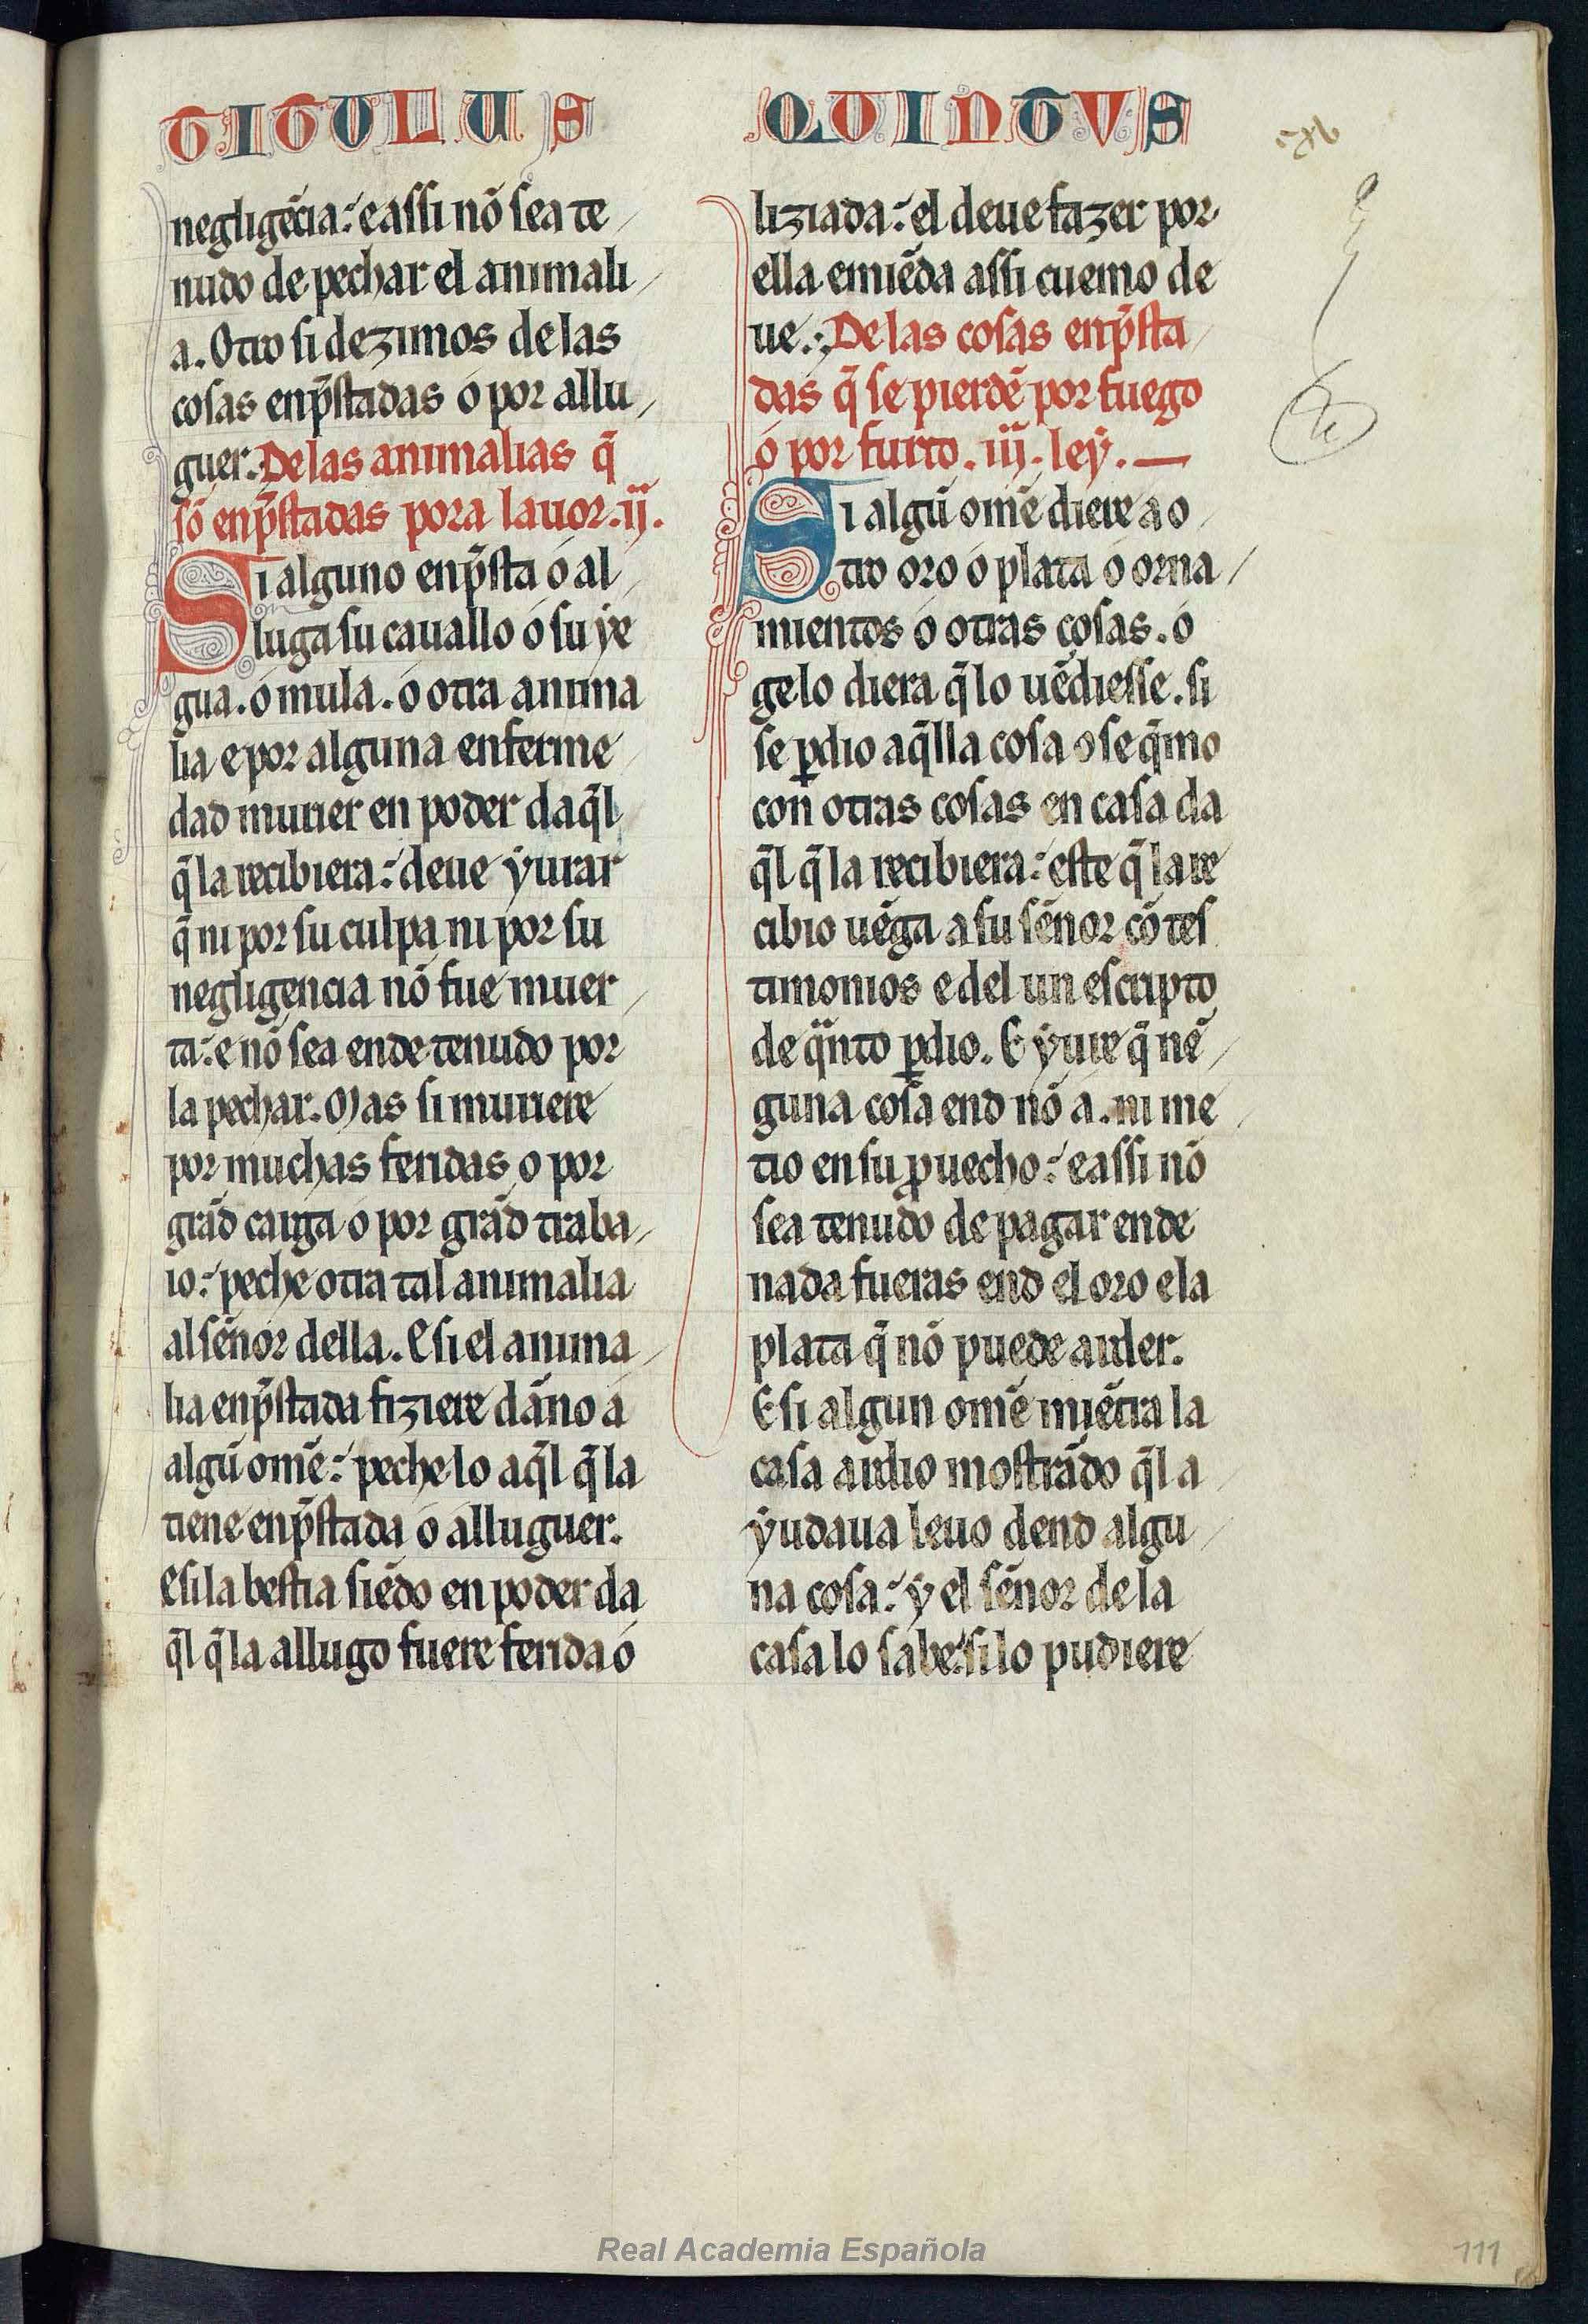 TITULUS QUINTVS
negligẽcia: e assi nõ sea te
nudo de pechar el animali
a. Otro si dezimos de las
cosas enp̃stadas ó por allu
guer. De las animalias q̃
sõ enp̃stadas pora lauor. ij.
Si alguno enp̃sta ó al
luga su cauallo ó su ye
gua. ó mula. ó otra anima
lia e por alguna enferme
dad murier en poder daq̃l
q̃ la recibiera: deue yurar
q̃ ni por su culpa ni por su
negligencia nõ fue muer
ta: e nõ sea ende tenudo por
la pechar. Mas si muriere
por muchas feridas o por
grãd carga ó por grãd traba
io: peche otra tal animalia
al sẽnor della. E si el anima
lia enp̃stada fiziere dãno á
algũ omẽ: peche lo aq̃l q̃ la
tiene enp̃stada ó alluguer.
E si la bestia siẽdo en poder da
q̃l q̃ la allugo fuere ferida ó
liziada: el deue fazer por
ella emiẽda assi cuemo de
ue. De las cosas enp̃sta
das q̃ se pierdẽ por fuego
ó por furto. iij. ley.
Si algũ omẽ diere a o
tro oro ó plata ó orna
mientos ó otras cosas. ó
gelo diera q̃ lo uẽdiesse. si
se ꝑdio aq̃lla cosa o se q̃mo
con otras cosas en casa da
q̃l q̃ la recibiera: este q̃ la re
cibio uẽga a su sẽnor cõ tes
timonios e del un escripto
de q̃nto ꝑdio. E yure q̃ nẽ
guna cosa end nõ a. ni me
tio en su ꝓuecho: e assi nõ
sea tenudo de pagar ende
nada fueras end el oro e la
plata q̃ nõ puede arder.
E si algun omẽ miẽtra la
casa ardio mostrãdo q̃l a
yudaua leuo dend algu
na cosa: y el sẽnor de la
casa lo sabe: si lo pudiere
Real Academia Española
111